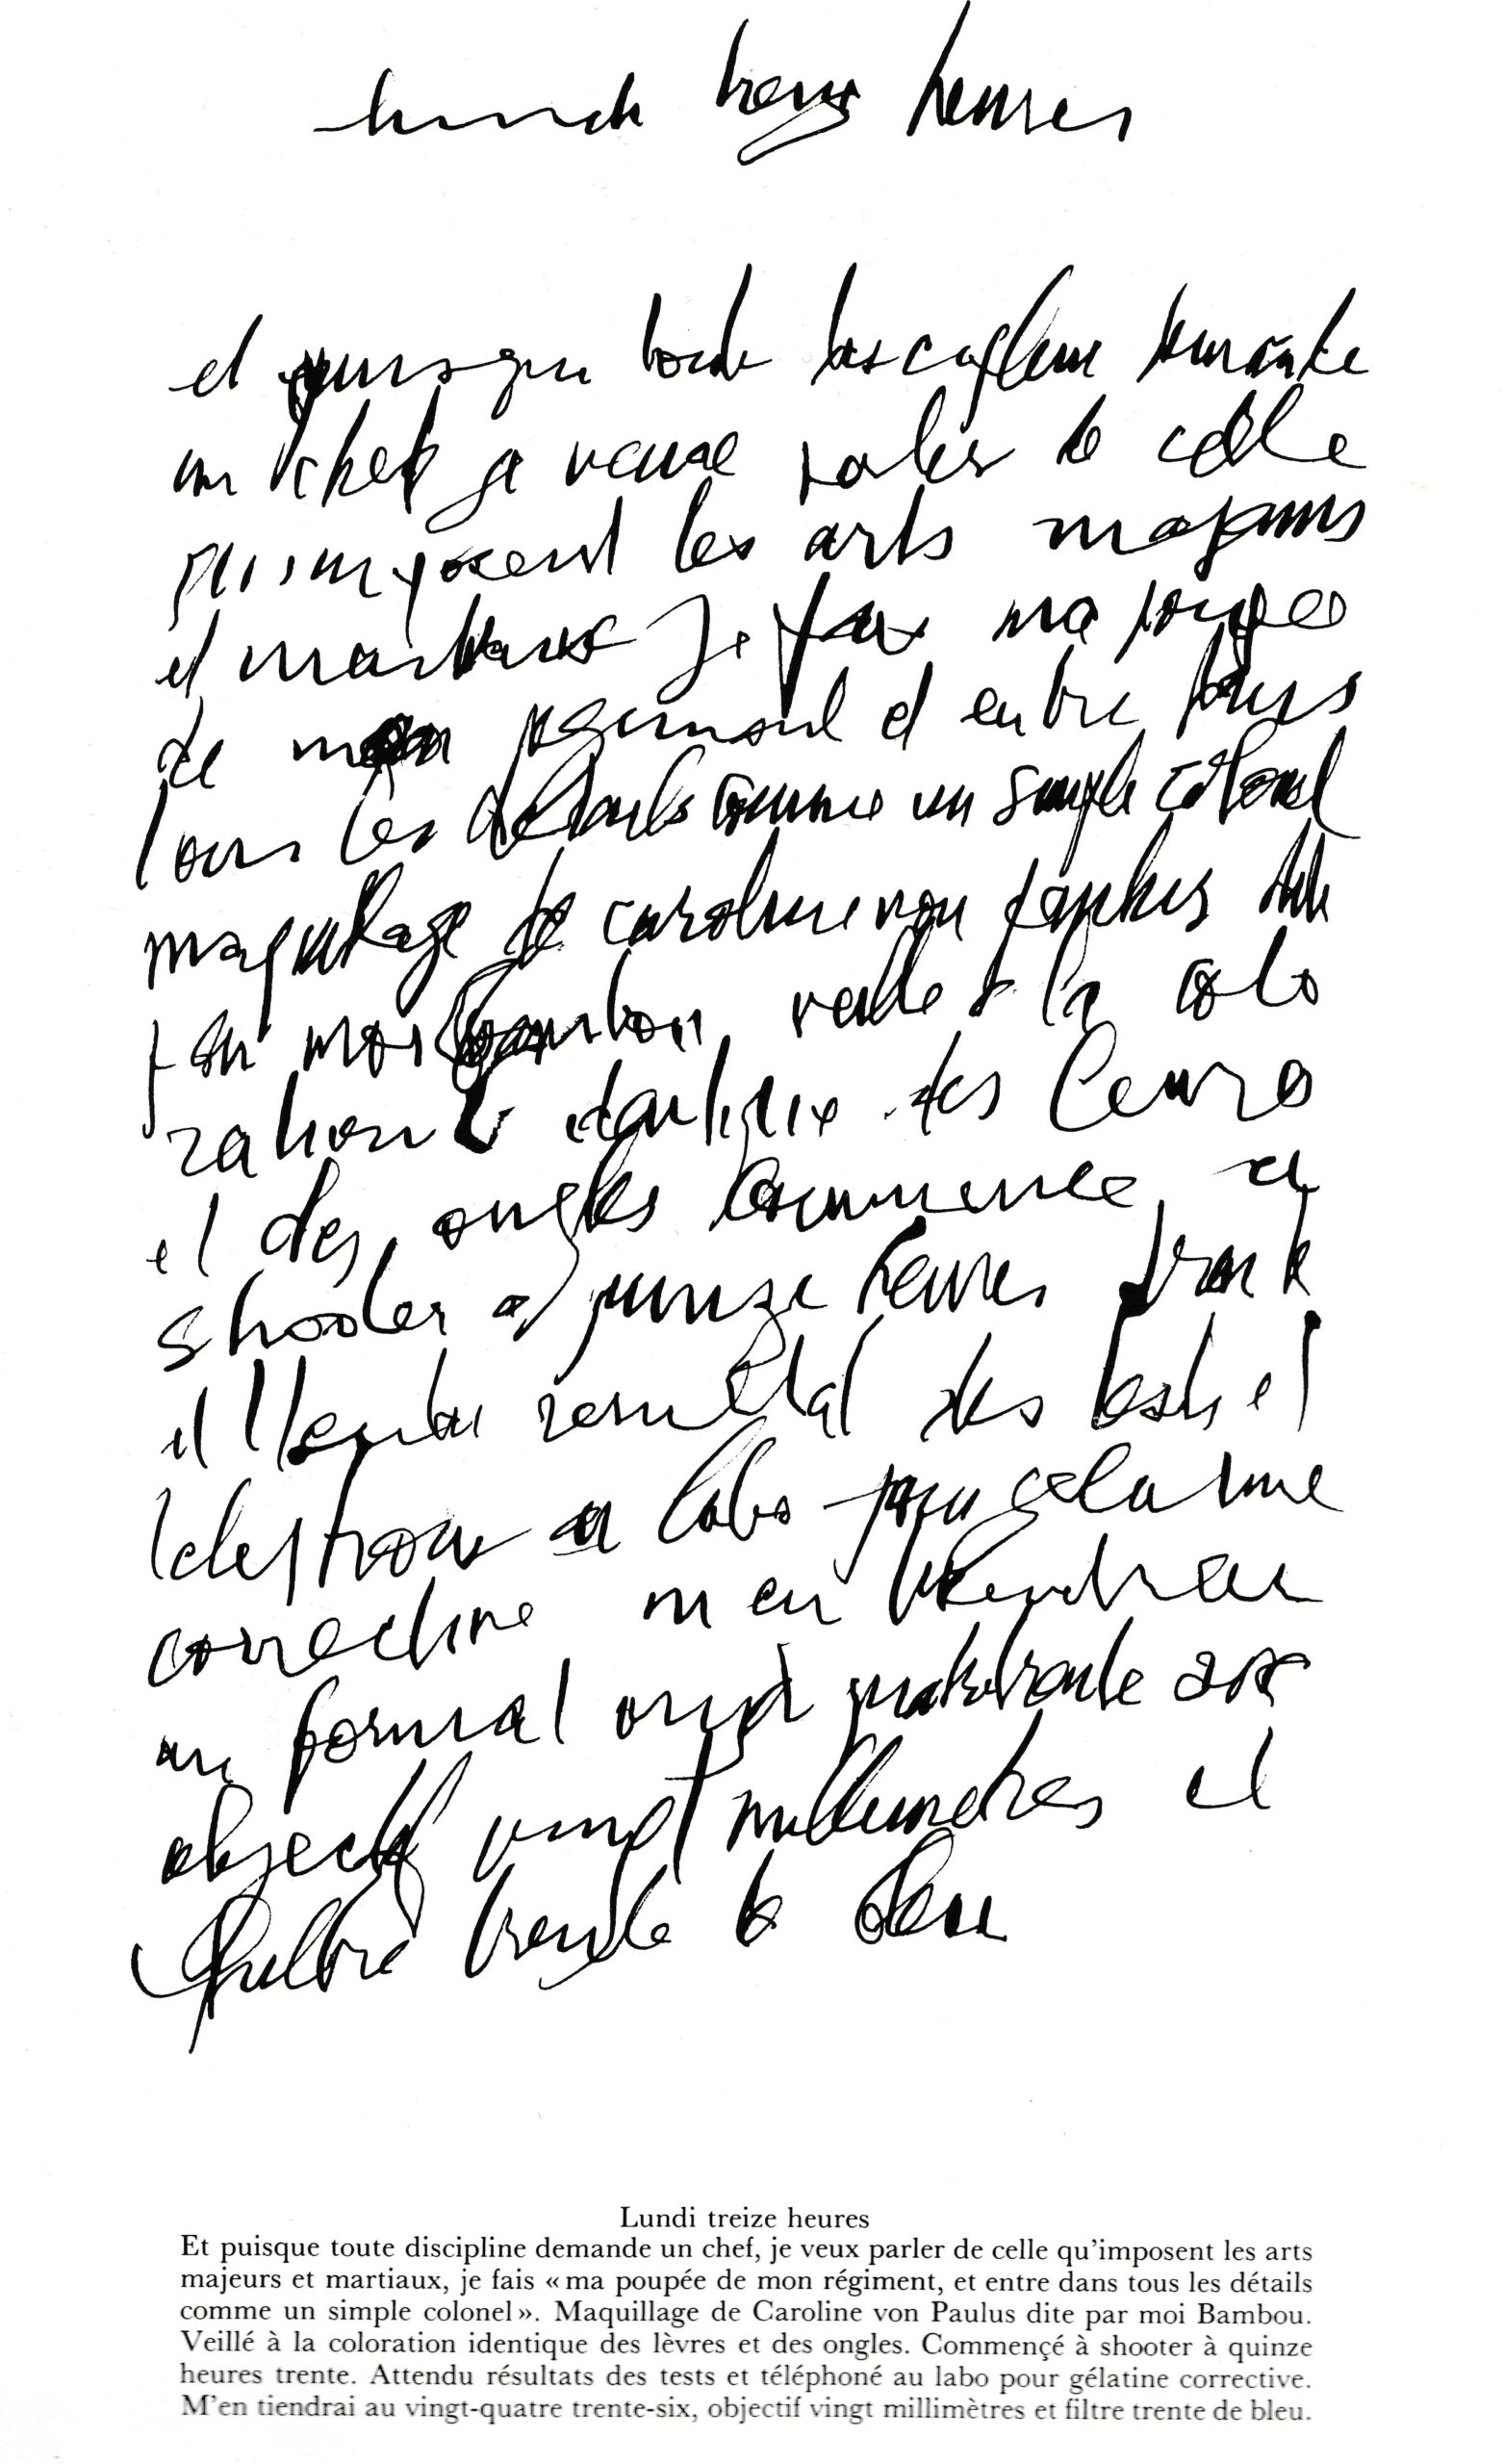 lundi treize heures
et puisque toute discipline demande
un chef je veux parler de celle
qu'imposent les arts majeurs
et martiaux je fais ma poupée
de mon régiment et entre dans
tous les détails comme un simple colonel
maquillage de caroline von paulus dite
par moi bambou veillé à la colo
ration identique des lèvres
et des ongles commencé à
shooter à quinze heures trente
attendu résultat des tests et
téléphoné au labo pour gélatine
corrective m'en tiendrai
au format vingt quatre trente six
objectif vingt millimètres et
filtre trente de bleu
Lundi treize heures
Et puisque toute discipline demande un chef, je veux parler de celle qu'imposent les arts
majeurs et martiaux, je fais « ma poupée de mon régiment, et entre dans tous les détails
comme un simple colonel ». Maquillage de Caroline von Paulus dite par moi Bambou.
Veillé à la coloration identique des lèvres et des ongles. Commençé à shooter à quinze
heures trente. Attendu résultats des tests et téléphoné au labo pour gélatine corrective.
M'en tiendrai au vingt-quatre trente-six, objectif vingt millimètres et filtre trente de bleu.